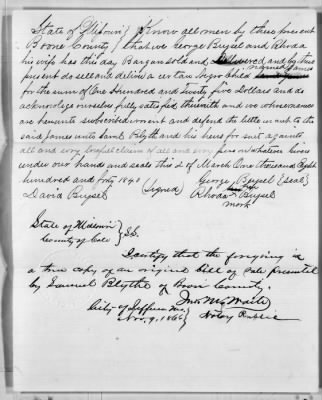 State of Missouri } Know all men by these present
Boone County } that we George Buzsel and Rhoda
his wife has this day Bargan sold and delivered, and by these
present do sell and deliver a certain Negro Child named James
for the sum of One Hundred and twenty five Dollars and do
acknolege ourselves fully satisfied therewith and we whose names
are hereunto subscribed warent and defend the title to the
said James unto Saml Blyth and his heirs for ever against
all and every lawful claim of all and every person whatever Given
under our hands and seals this 2 of March One thousand Eight
hundred and forty 1840 George Buzsel {Seal}
David Buzsel (Signed) Rhoda her X Buzsel
mark
State of Missouri }
County of Cole } SS.
I certify that the foregoing is
a true copy of an original bill of sale presented
by Samuel Blythe of Boon County.
City of Jefferson Mo }
Nov. 9, 1866 } Notary Public